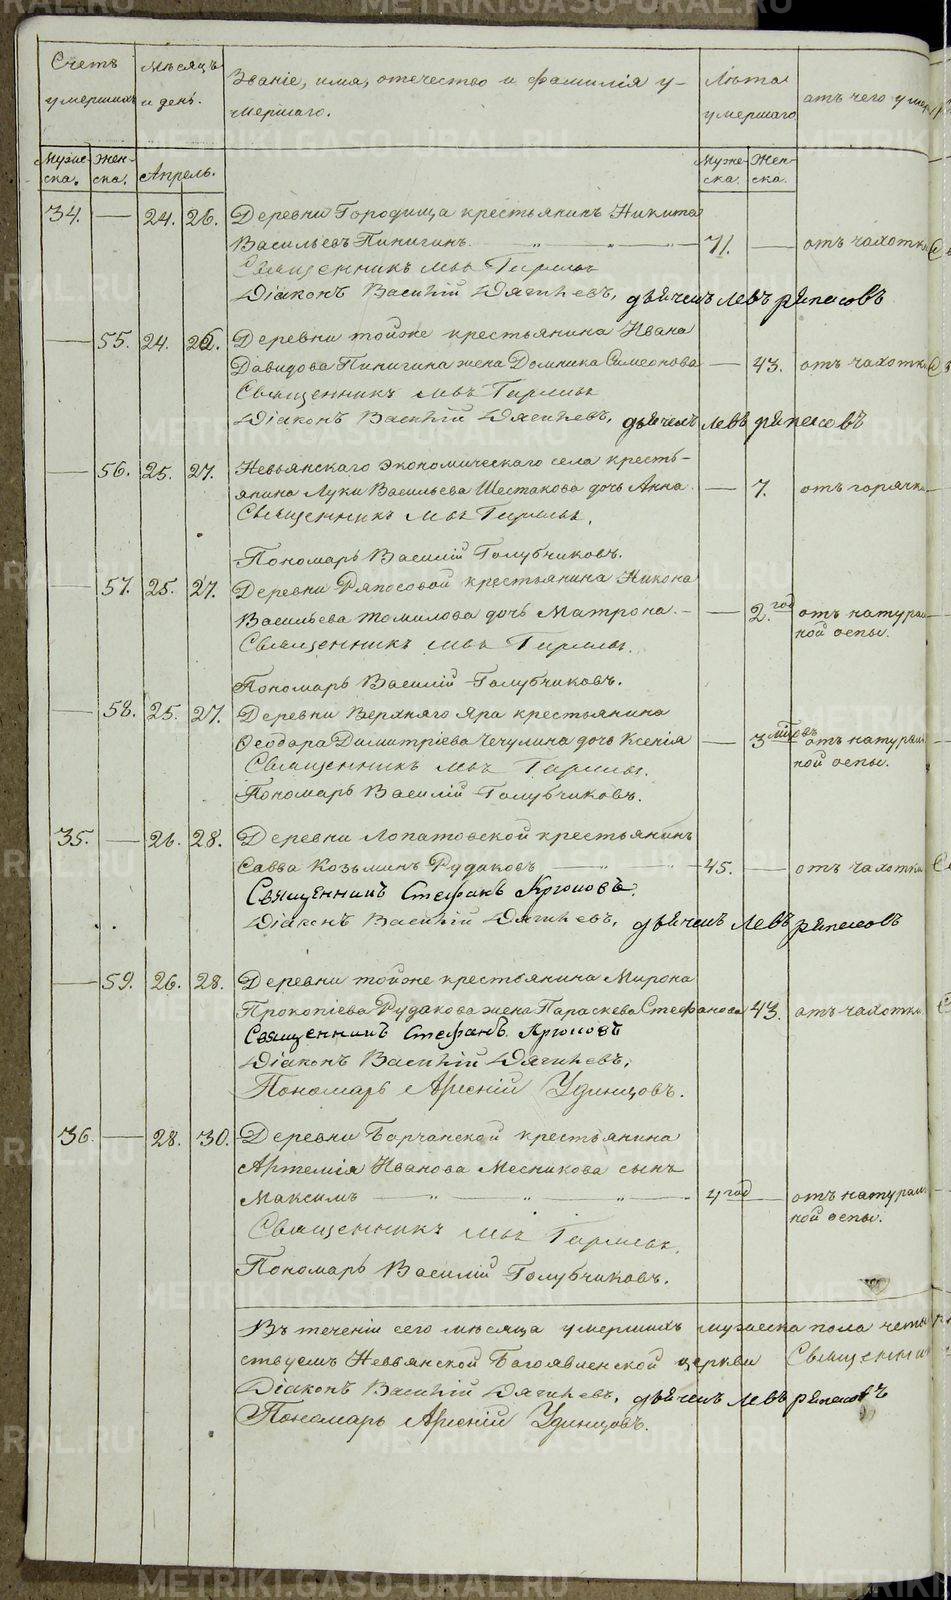 Счетъ умершихъ
Мѣсяцъ и день.
Званіе, имя, отечество и фамилія у-
мершаго.
Лѣта умершаго
отъ чего умер
Муже-
ска.
Жен-
ска.
Апрель.
Муже-
ска.
Жен-
ска.
34. — 24. 26. Деревни Городища крестьянинъ Никита
Васильевъ Пинигинъ. 71. — отъ чахотки
Священникъ
Діаконъ Василій Дягилевъ, дьячекъ Левъ Ряпасовъ
— 55. 24. 26. Деревни тойже крестьянина Ивана
Давидова Пинигина жена Домника Симеонова — 43. отъ чахотки
Священникъ
Діаконъ Василій Дягилевъ, дьячекъ Левъ Ряпасовъ
— 56. 25. 27. Невьянскаго экономическаго села кресть-
янина Луки Васильева Шестакова дочь Анна. — 7. отъ горячки
Священникъ
Пономарь Василій Голубчиковъ.
— 57. 25. 27. Деревни Ряпосовой крестьянина Никона
Васильева Томилова дочь Матрона. — 2. год отъ натураль
ной оспы.
Священникъ
Пономарь Василій Голубчиковъ.
— 58. 25. 27. Деревни Верхняго Яра крестьянина
Ѳеодора Димитріева Чечулина дочь Ксенія — 3 отъ натураль
ной оспы.
Священникъ
Пономарь Василій Голубчиковъ.
35. — 26. 28. Деревни Лопатовской крестьянинъ
Савва Козьминъ Рудаковъ 45. — отъ чахотки
Священникъ Стефанъ
Діаконъ Василій Дягилевъ, дьячекъ Левъ Ряпасовъ
— 59. 26. 28. Деревни тойже крестьянина Мирона
Прокопіева Рудакова жена Параскева Стефанова 43. отъ чахотки
Священникъ Стефанъ
Діаконъ Василій Дягилевъ.
Пономарь Арсеній Удинцовъ.
36. — 28. 30. Деревни Борчанской крестьянина
Артемія Иванова Месникова сынъ
Максимъ 4 год — отъ натураль
ной оспы.
Священникъ
Пономарь Василій Голубчиковъ.
Въ теченіи сего мѣсяца умершихъ мужеска пола четы
ствуемъ Невьянской Богоявленской церкви Священник
Діаконъ Василій Дягилевъ, дьячекъ Левъ Ряпасовъ
Пономарь Арсеній Удинцовъ.
METRIKI.GASO-URAL.RU